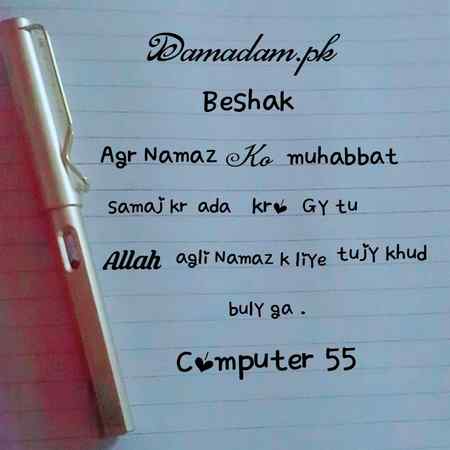 Damadam.pk
Beshak
Agr Namaz Ko muhabbat
samaj kr ada kro Gy tu
Allah agli Namaz k liye tujy khud
buly ga .
Computer 55